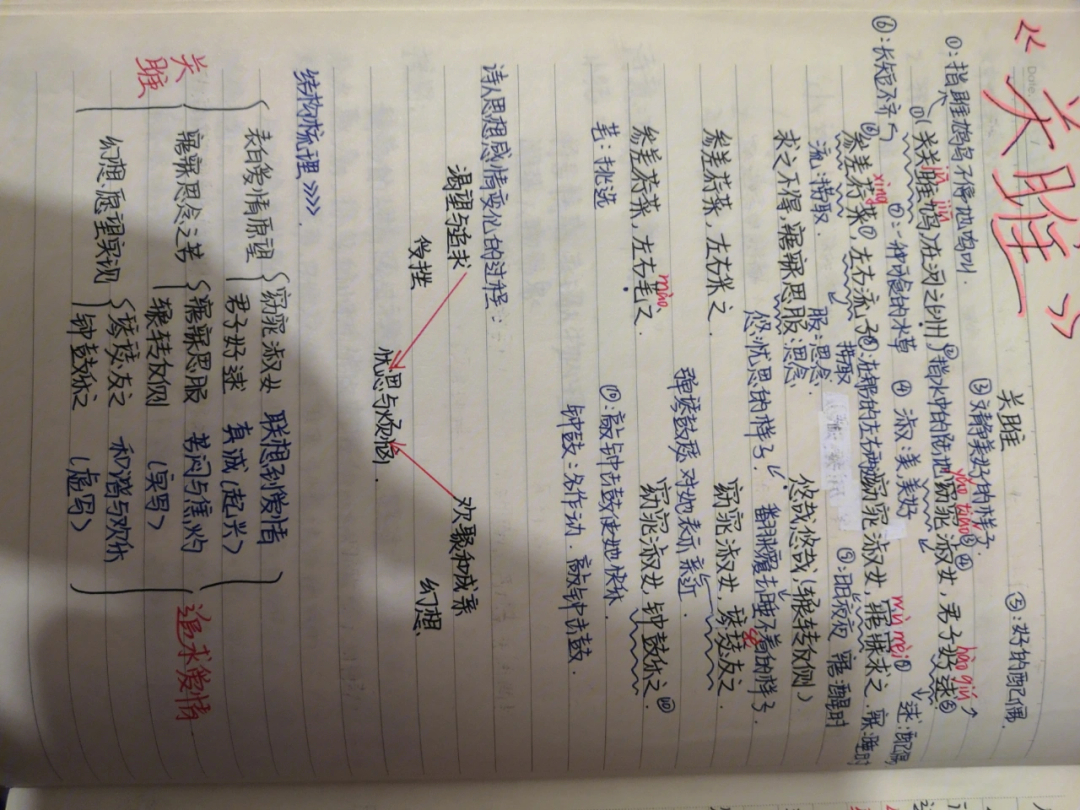 《关雎》
关雎
⑤:好的配偶.
③对静美好的样子.
①:指雎鸠鸟不停地鸣叫.
②指水中的陆地
jū jiū
yǎo tiǎo
hǎo qiú
关关雎鸠①在河之洲②窈窕③淑④女,君子好逑⑤
⑥:长短不齐
⑦:一种可食的水草
④淑:美 美好
逑:配偶
xìng
mèi
参差荇菜①左右流之⑧
窈窕淑女,寤寐求之.
流:捞取.
捞取
⑨:日夜 寤:醒时 寐:睡时
求之不得,寤寐思服
悠哉悠哉(辗转反侧)
服:思念.
悠:忧思的样子
翻来覆去睡不着的样子.
参差荇菜,左右采之.
窈窕淑女,琴瑟友之.
弹琴鼓瑟 对她表示亲近
mào
参差荇菜,左右芼之.
窈窕淑女,钟鼓乐之.⑩
芼:挑选
⑩:敲钟击鼓使她快乐
钟鼓:名作动.敲钟击鼓.
诗人思想感情变化的过程:
渴望与追求
欢聚和成亲
幻想
忧思与烦恼.
结构梳理》》》》.
关雎
表白爱情愿望
窈窕淑女 联想到爱情
君子好逑 真诚(起兴)
寤寐思念之苦
寤寐思服 苦闷与焦灼
辗转反侧 (实写)
幻想愿望实现
琴瑟友之 和谐与欢乐
钟鼓乐之 (虚写)
追求爱情